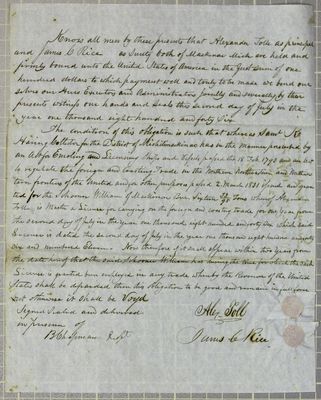 Know all men by these presents that Alexander Toll as principal
and James C Rice as Surety both of Mackinac Mich are held and
firmly bound unto the United States of America in the just sum of one
hundred dollars to which payment well and truly to be made we bind our
selves our Heirs Executors and Administrators jointly and severally by these
presents witness our hands and seals this second day of July in the
year one thousand eight hundred and forty Six
The condition of this obligation is such that whereas Saml K
Haring Collector for the District of Michilimackinac has in the manner prescribed by
an act for Enrolling and Licensing Ships and Vessels passed the 18 Feby 1793 and an act
to regulate the foreign and Coasting Trade on the Northern Northeastern and Northwes
tern frontiers of the United and for other purposes passed 2 March 1831 and gran
ted for the Schooner William of Mackinac tons whereof Alexander
Toll is Master a License for carrying on the foreign and coasting trade for one year from
the second day of July in the year one thousand eight hundred and forty six which said
License is dated the second day of July in the year one thousand eight hundred and forty
six and numbered Eleven Now therefore if said within two years from
the date hereof that the said Schooner William has during the time for which the said
License is granted been employed in any trade whereby the Revenue of the United
States shall be defrauded then this obligation to be good and remain in full force
but otherwise it shall be Void
Signed Sealed and delivered
in presence of
B Chapman
Alex. Toll
James C Rice